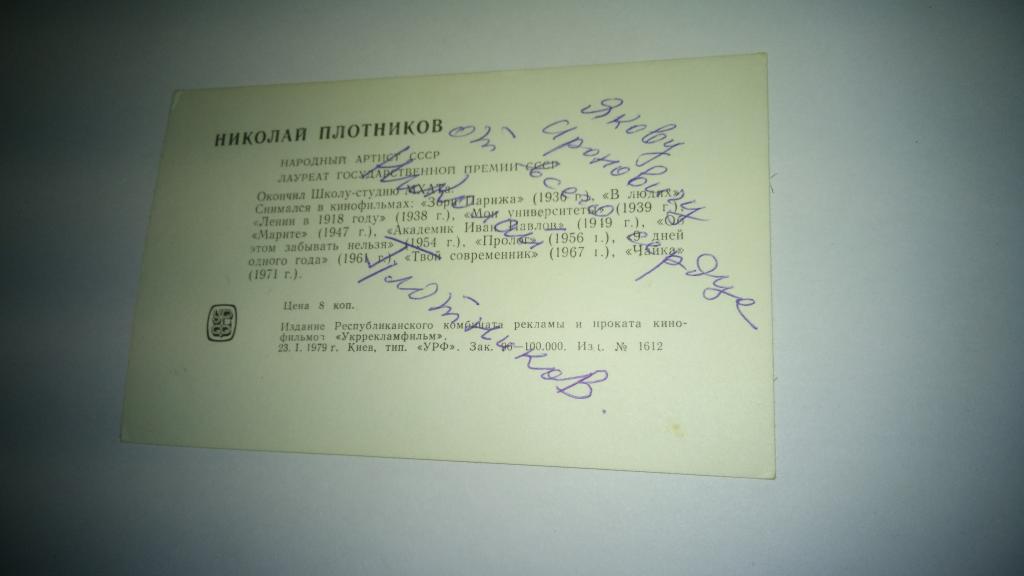 НИКОЛАЙ ПЛОТНИКОВ
НАРОДНЫЙ АРТИСТ СССР
ЛАУРЕАТ ГОСУДАРСТВЕННОЙ ПРЕМИИ СССР
Окончил Школу-студию МХАТа.
Снимался в кинофильмах: «Зори Парижа» (1936 г.), «В людях»,
«Ленин в 1918 году» (1938 г.), «Мои университеты» (1939 г.),
«Марите» (1947 г.), «Академик Иван Павлов» (1949 г.), «Об
этом забывать нельзя» (1954 г.), «Пролог» (1956 г.), «9 дней
одного года» (1961 г.), «Твой современник» (1967 г.), «Чайка»
(1971 г.).
Цена 8 коп.
Издание Республиканского комбината рекламы и проката кино-
фильмов «Укррекламфильм».
23. 1. 1979 г. Киев, тип. «УРФ». Зак. 96—100.000. Изд. № 1612
Якову
Ароновичу
от всего сердца
Николай
Плотников.